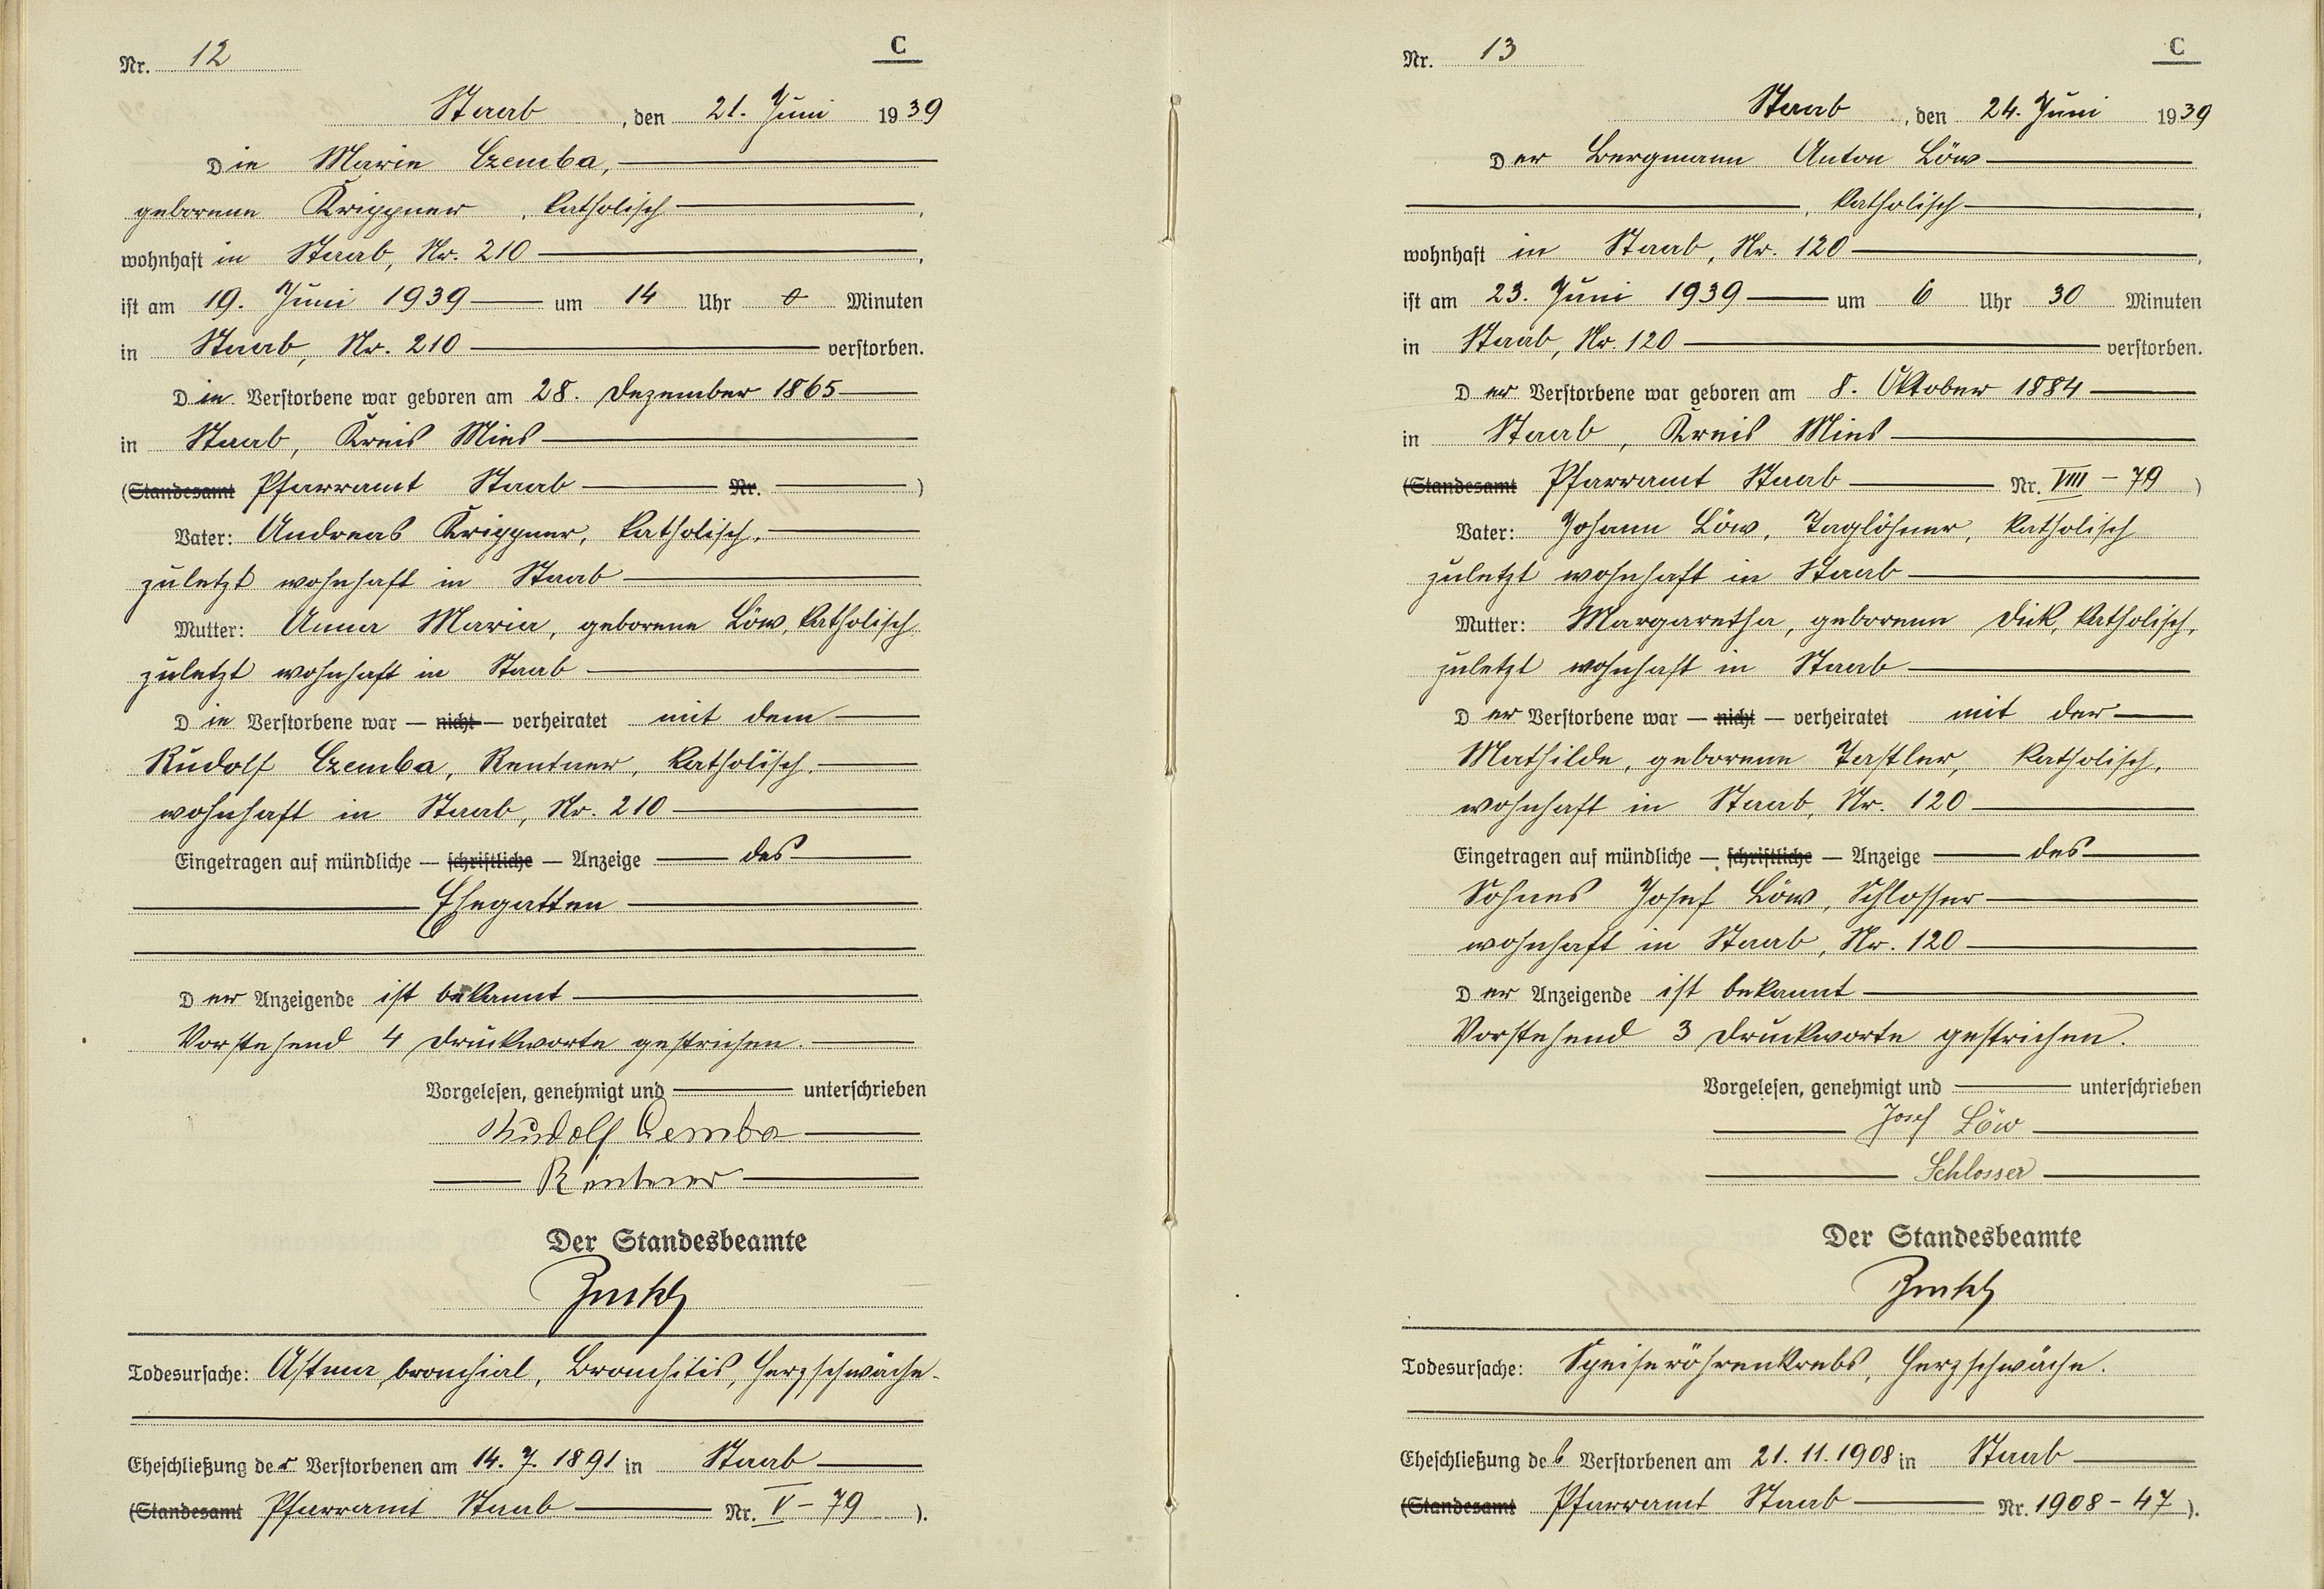 Nr. 12
C
Staab, den 21. Juni 1939
Die Marie Czemba,
geborene Krippner, katholisch,
wohnhaft in Staab, Nr. 210,
ist am 19. Juni 1939 um 14 Uhr 0 Minuten
in Staab, Nr. 210 verstorben.
Die Verstorbene war geboren am 28. Dezember 1865
in Staab, Kreis Mies
(Standesamt Pfarramt Staab Nr. )
Vater: Andreas Krippner, katholisch,
zuletzt wohnhaft in Staab
Mutter: Anna Maria, geborene Löw, katholisch
zuletzt wohnhaft in Staab
Die Verstorbene war — nicht — verheiratet mit dem
Rudolf Czemba, Rentner, katholisch,
wohnhaft in Staab, Nr. 210
Eingetragen auf mündliche — schriftliche — Anzeige des
Ehegatten
Der Anzeigende ist bekannt
Vorstehend 4 Druckworte gestrichen.
Vorgelesen, genehmigt und unterschrieben
Rudolf Czemba
Rentner
Der Standesbeamte
Todesursache: Astma bronchial, Bronchitis, Herzschwäche.
Eheschließung der Verstorbenen am 14. 7. 1891 in Staab
(Standesamt Pfarramt Staab Nr. V - 79 ).
Nr. 13
C
Staab, den 24. Juni 1939
Der Bergmann Anton Löw
, katholisch,
wohnhaft in Staab, Nr. 120,
ist am 23. Juni 1939 um 6 Uhr 30 Minuten
in Staab, Nr. 120 verstorben.
Der Verstorbene war geboren am 8. Oktober 1884
in Staab, Kreis Mies
(Standesamt Pfarramt Staab Nr. VIII - 79 )
Vater: Johann Löw, Taglöhner, katholisch
zuletzt wohnhaft in Staab
Mutter: Margaretha, geborene Dick, katholisch,
zuletzt wohnhaft in Staab
Der Verstorbene war — nicht — verheiratet mit der
Mathilde, geborene Tastler, katholisch,
wohnhaft in Staab, Nr. 120
Eingetragen auf mündliche — schriftliche — Anzeige des
Sohnes Josef Löw, Schlosser
wohnhaft in Staab, Nr. 120
Der Anzeigende ist bekannt
Vorstehend 3 Druckworte gestrichen.
Vorgelesen, genehmigt und unterschrieben
Josef Löw
Schlosser
Der Standesbeamte
Todesursache: Speiseröhrenkrebs, Herzschwäche.
Eheschließung des Verstorbenen am 21. 11. 1908 in Staab
(Standesamt Pfarramt Staab Nr. 1908 - 47 ).